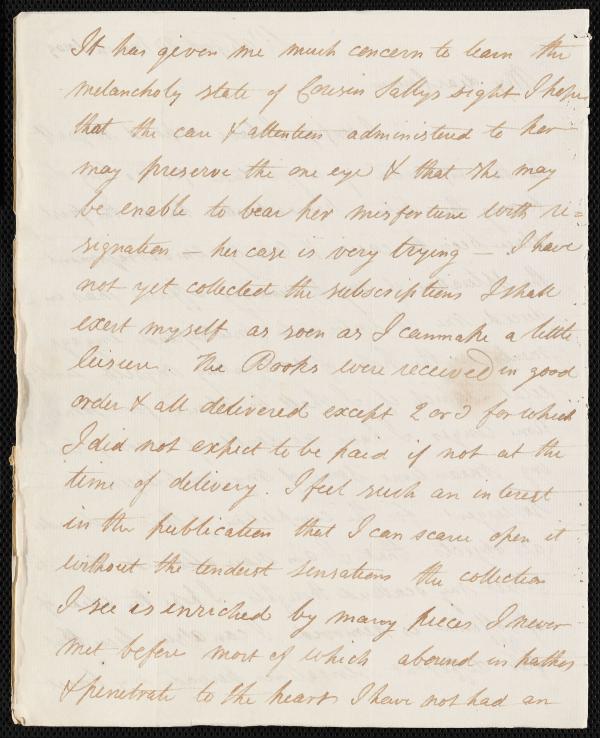 It has given me much concern to learn the
melancholy state of Cousin Sallys sight I hope
that the care & attention administered to her
may preserve the one eye & that she may
be enable to bear her misfortune with re=
signation – her case is very trying – I have
not yet collected the subscriptions I shall
exert myself as soon as I can make a little
leisure. The Books were received in good
order & all delivered except 2 or 3 for which
I did not expect to be paid if not at the
time of delivery. I feel such an interest
in the publication that I can scarce open it
without the tenderest sensations the collection
I see is enriched by many pieces I never
met before most of which abound in pathos
& penetrate to the heart I have not had an